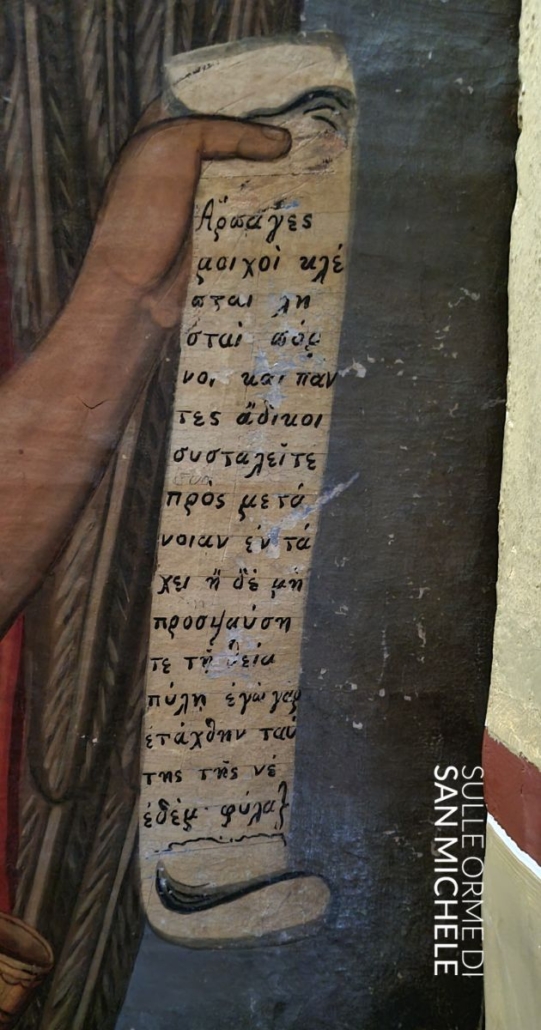 Ἅρπαγες
μοιχοὶ κλέ
πται λη
σταὶ πόρ
νοι καὶ παν
τες ἄδικοι
συσταλεῖτε
πρὸς μετά
νοιαν ἐν τά
χει
τε τῇ θεία
πύλη ἐγὼ γαρ
ἐτάχθην ταύ
της της ἐν
φύλαξ
SULLE ORME DI
SAN MICHELE